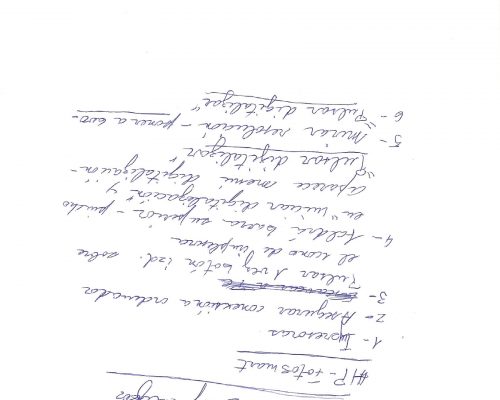 HP-Fotosmart
1- Impresoras
2- Asegurar conexión a ordenador
3-
Pulsar 1 vez botón izd. sobre
el icono de impresora
4- Saldrá barra superior - pincho
en "iniciar digitalización" y
aparece menú digitalización-
"Pulsar digitalizar"
5- Mirar resolución - poner a 600-
6- "Pulsar digitalizar"